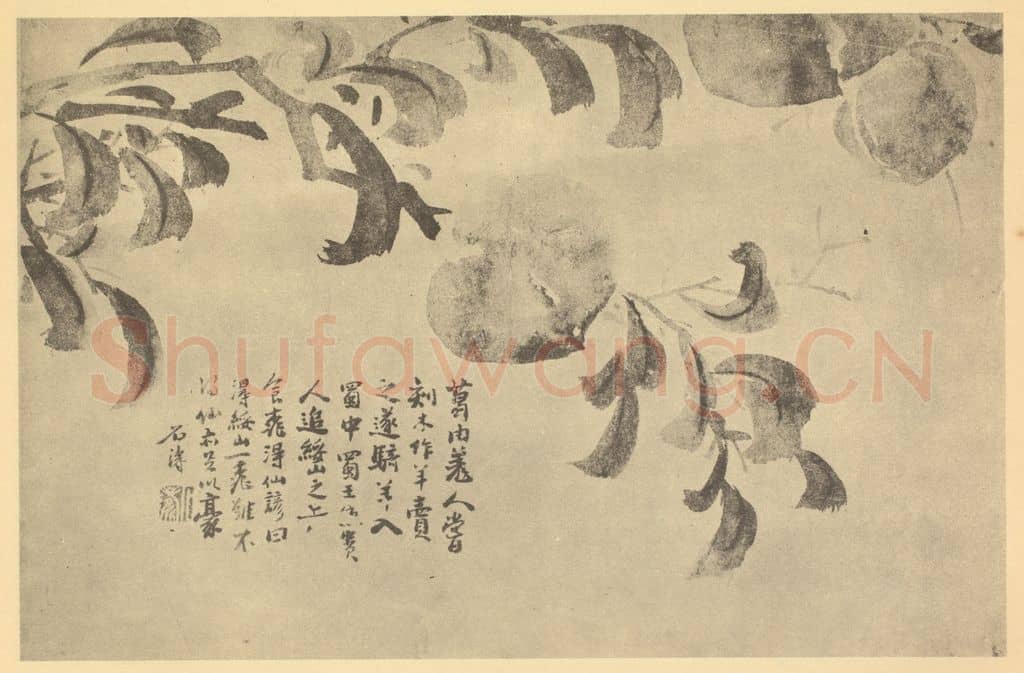 葛由羗人嘗
刻木作羊賣
之遂騎羊入
蜀中蜀王侯貴
人追綏山之上
食桃得仙諺曰
得綏山一桃雖不
得仙亦足以豪
石濤
Shufawang.CN